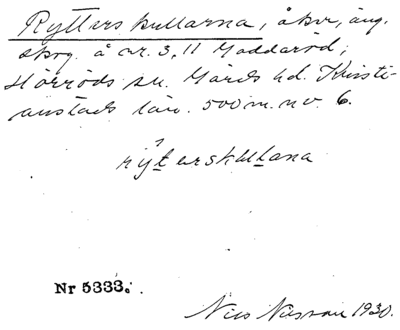 Rytterskullarna, åker, äng,
skog å nr. 3, 11 Maddaröd,
Hörröds sn. Gärds hd. Kristi-
anstads län. 500 m. nv. 6.
rýterskullana
Nr 5333.
Nils Nilsson 1930.